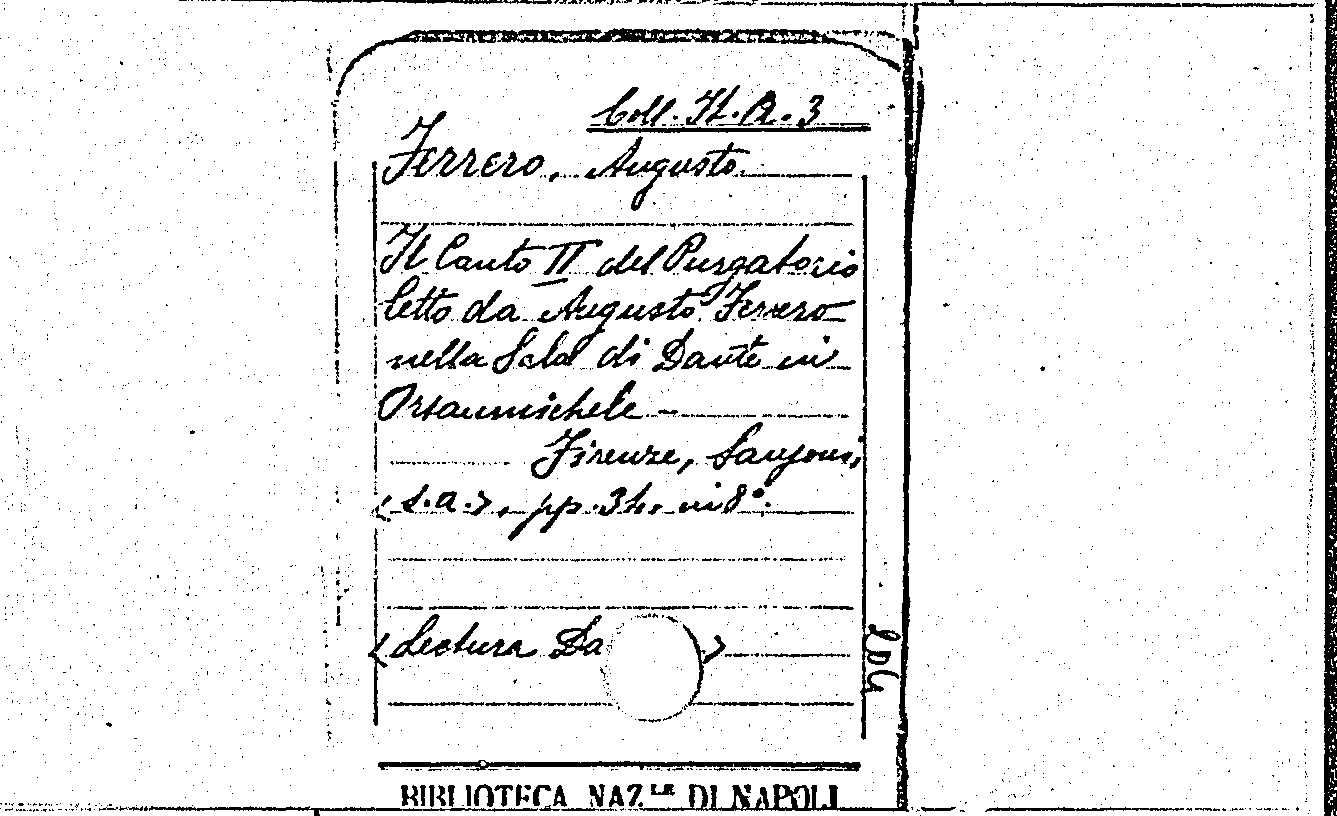 Coll. It. A. 3
Ferrero, Augusto
Il Canto II del Purgatorio
letto da Augusto Ferrero
nella Sala di Dante in
Orsanmichele -
Firenze, Sansoni,
<s.a.>, pp. 34. in 8°.
<Lectura Da >
BIBLIOTECA NAZ.LE DI NAPOLI